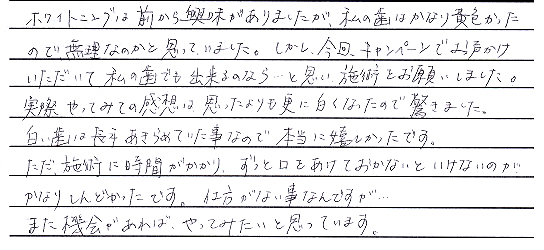 ホワイトニングは前から興味がありましたが、私の歯はかなり黄色かった
ので無理なのかと思っていました。しかし、今回キャンペーンでお声かけ
いただいて私の歯でも出来るのなら…と思い、施術をお願いしました。
実際やってみての感想は思ったよりも更に白くなったので驚きました。
白い歯は長年あきらめていた事なので本当に嬉しかったです。
ただ施術に時間がかかり、ずっと口をあけておかないといけないのが
かなりしんどかったです。仕方がない事なんですが…
また機会があれば、やってみたいと思っています。